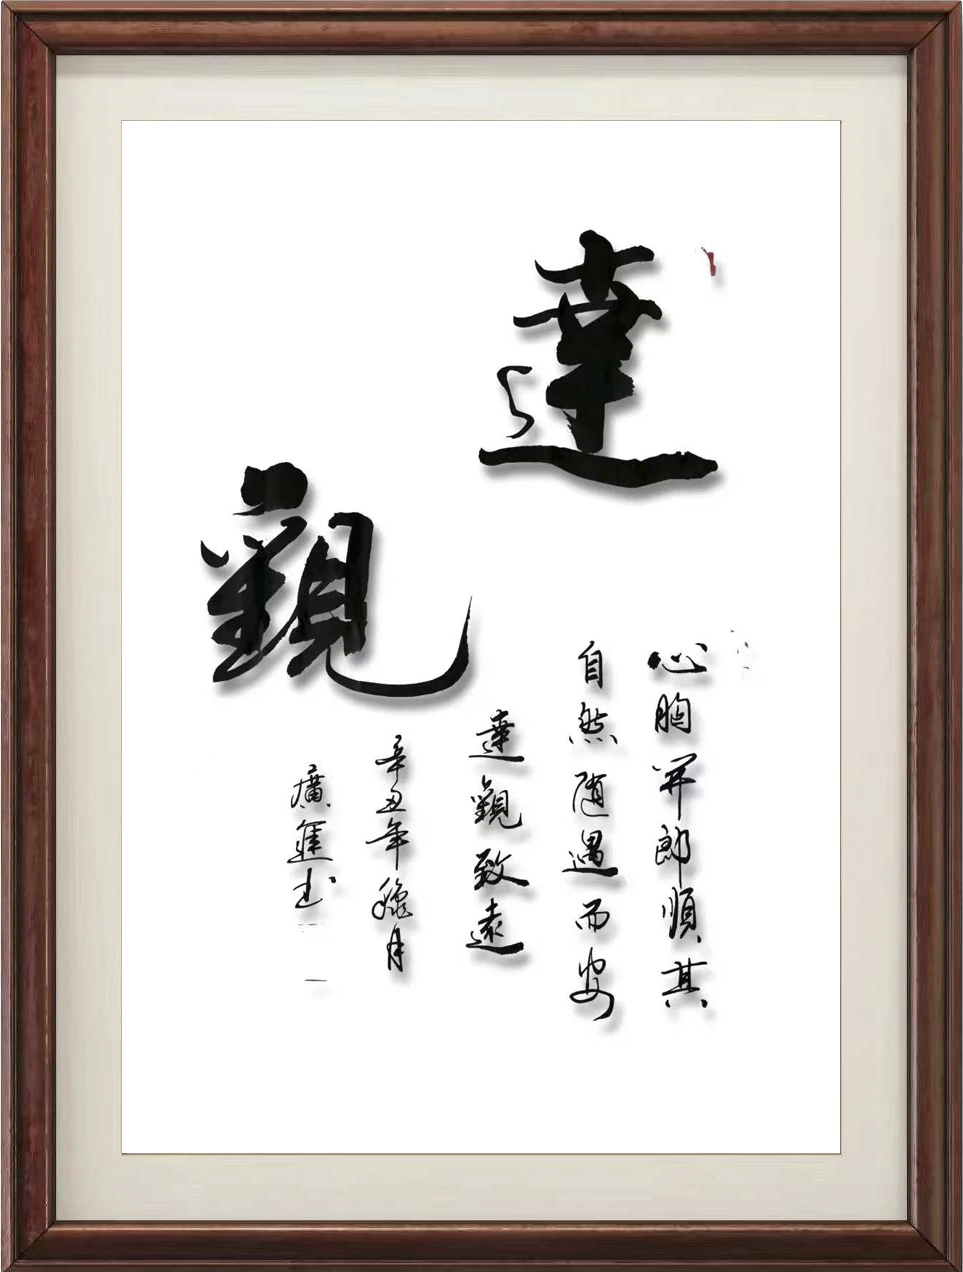 達
觀
心胸開郎順其
自然随遇而安
達觀致遠
辛丑年穐月
廣進书